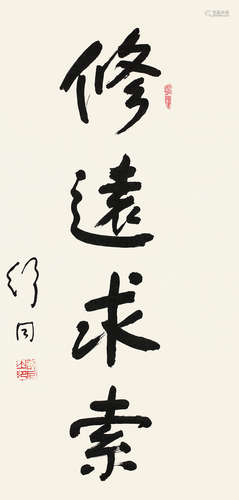 修遠求索
舒同